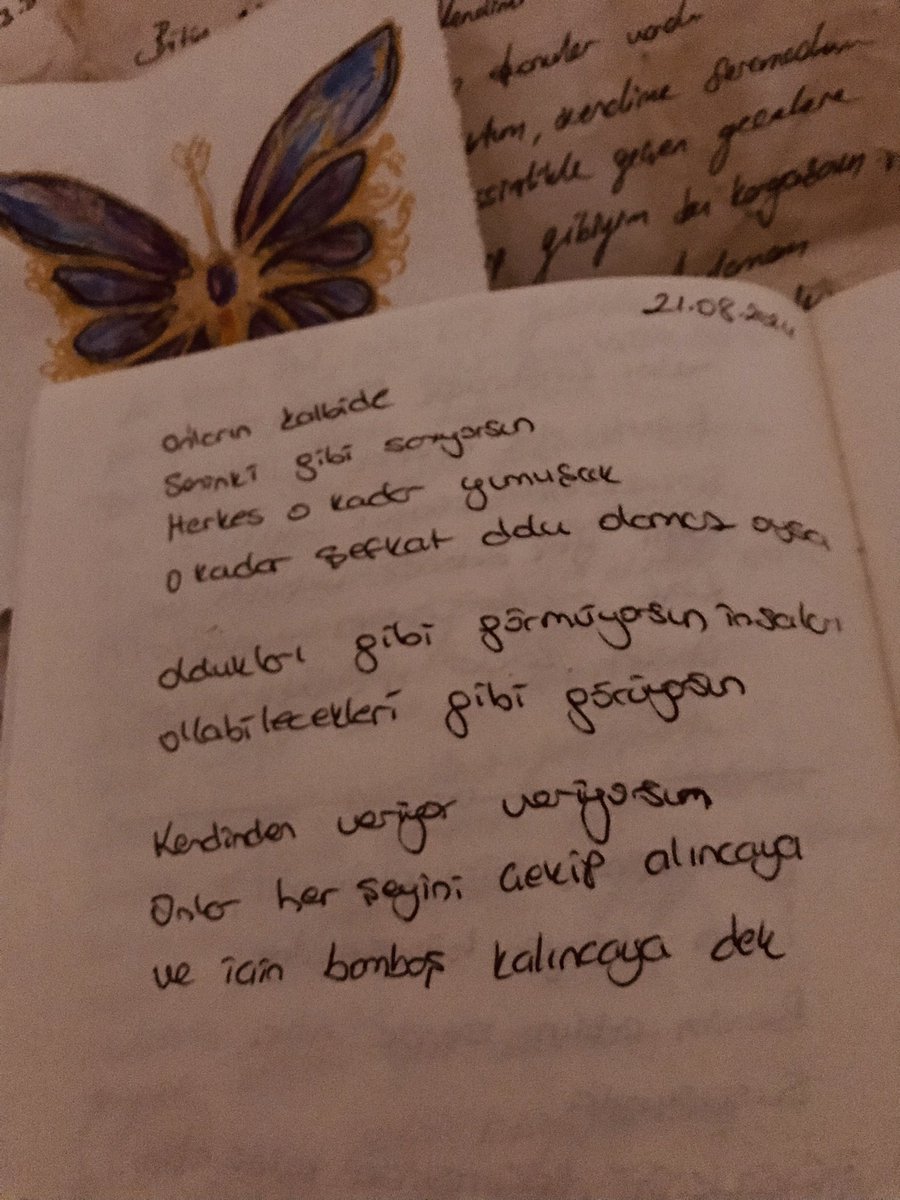 Bilu
kendime
konular vardı
kendime
geçen gecelere
gibiyim bu kargaşanın
21.08.2024
onların kalbide
Seninki gibi sanıyorsun
Herkes o kadar yumuşak
o kadar şefkat dolu olamaz oysa
oldukları gibi görmüyorsun insaları
olabilecekleri gibi görüyorsun
Kendinden veriyor veriyorsun
Onlar her şeyini çekip alıncaya
ve için bomboş kalıncaya dek